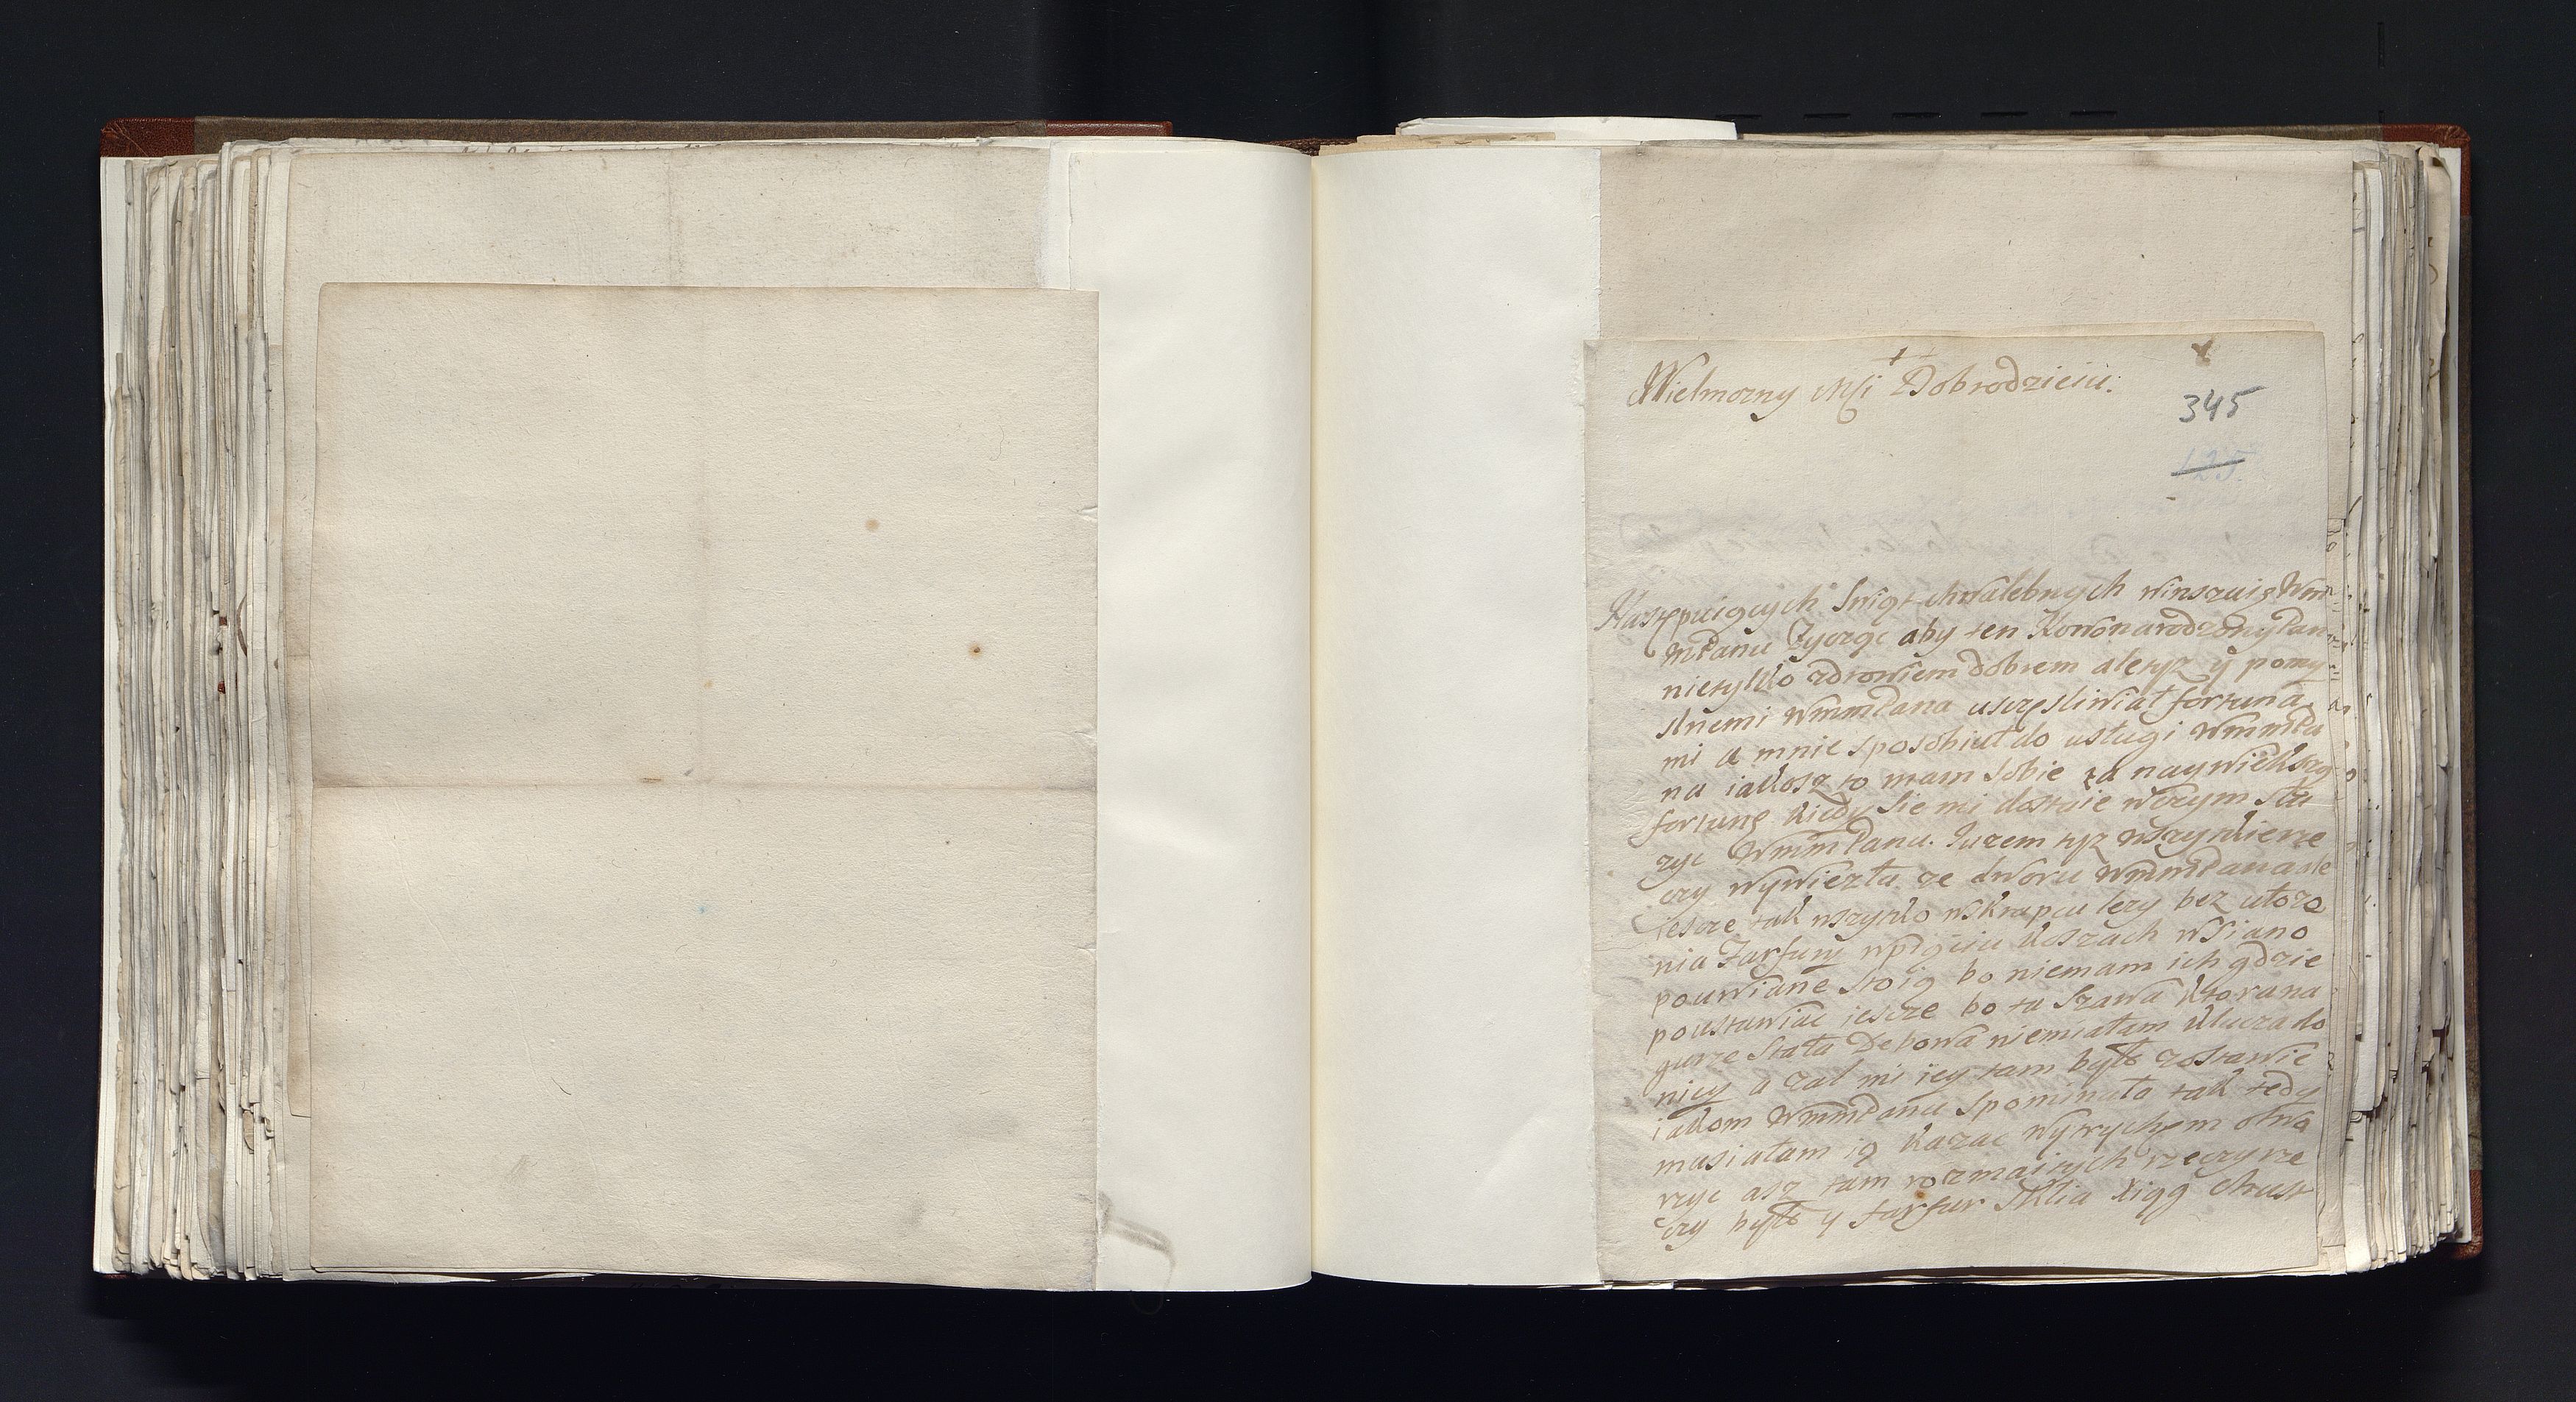 Wielmozny Msi Dobrodzieiu:
345
125
Następuiących Swiąt chwalebnych winszuię Wm
mPanu Zyczge aby ten Nowonarodzony Pan
nietylko zdrowiem dobrem aletyz y pomy
slnemi WmmPana usczęsliwiał fortuna
mi a mnie sposobiuł do usługi WmmPa
nu iakosz to mam sobie za naywiekszą
fortunę kiedy sie mi dostaie wczym słu
zyc WmmPanu. Juzem tyz wszytkie rze
czy wywiezła ze dworu WmmPana ale
iescze tak wszytko wskrapcu lezy bez ułoze
nia Farfury wpiąciu koszach wsiano
pouwiiane stoią bo niemam ich gdzie
poustawiac iescze bo ta Szawa ktorana
gurze stała Debowa niemiałam klucza do
niey a zal mi iey tam było zostawic
iakom WmmPanu spominała tak tedy
musiałam ią kazac wytrychem otwo
rzyc asz tam rozmaitych rzeczy rze
czy było y farfur Sklia Xiąg chust